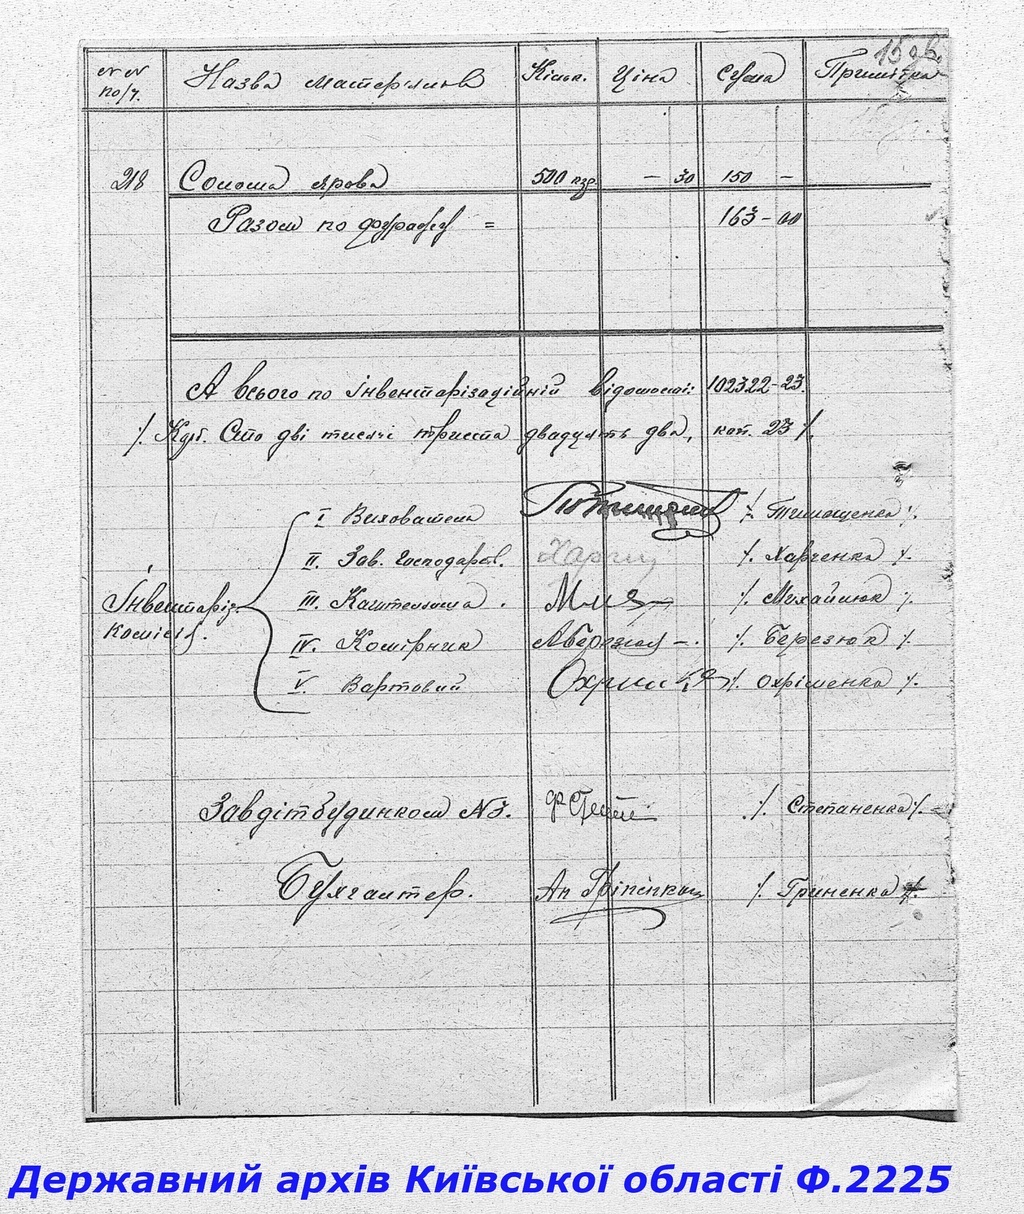 15 зв.
№№ по/ч. Назва матеріялів Кільк. Ціна Сума Примітка
218 Солома ярова 500 кгр. — 30 150 —
Разом по фуражу = 163-00
А всього по інвентарізаційній відомости: 102322-23.
/. Крб. Сто дві тисячі триста двадцять два, коп. 23 /.
Інвентаріз. комісія.
I Вихователь /. Тимощенко /.
II. Зав. господарств. /. Харченко /.
III. Каштелянша. /. Михайлюк /.
IV. Комірник А Березюк /. Березюк /.
V. Вартовий /. Охріменко /.
Завдітбудинком №3. /. Степаненко /.
Бухгалтер. /. Гриненко /.
Державний архів Київської області Ф.2225